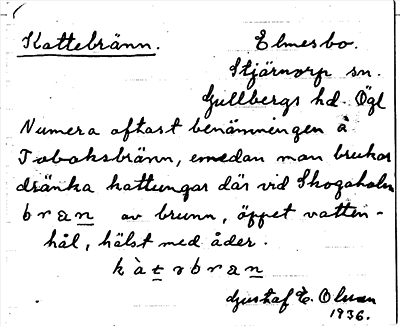 Kattebränn.
Elmesbo.
Stjärnorp sn.
Gullbergs hd. Ögl
Numera oftast benämningen å
Tobaksbränn, emedan man brukar
dränka kattungar där vid Skogaholm
b r a n av brunn, öppet vatten-
hål, hälst med åder.
k à t ə b r a n
Gustaf E. Olsson
1936.